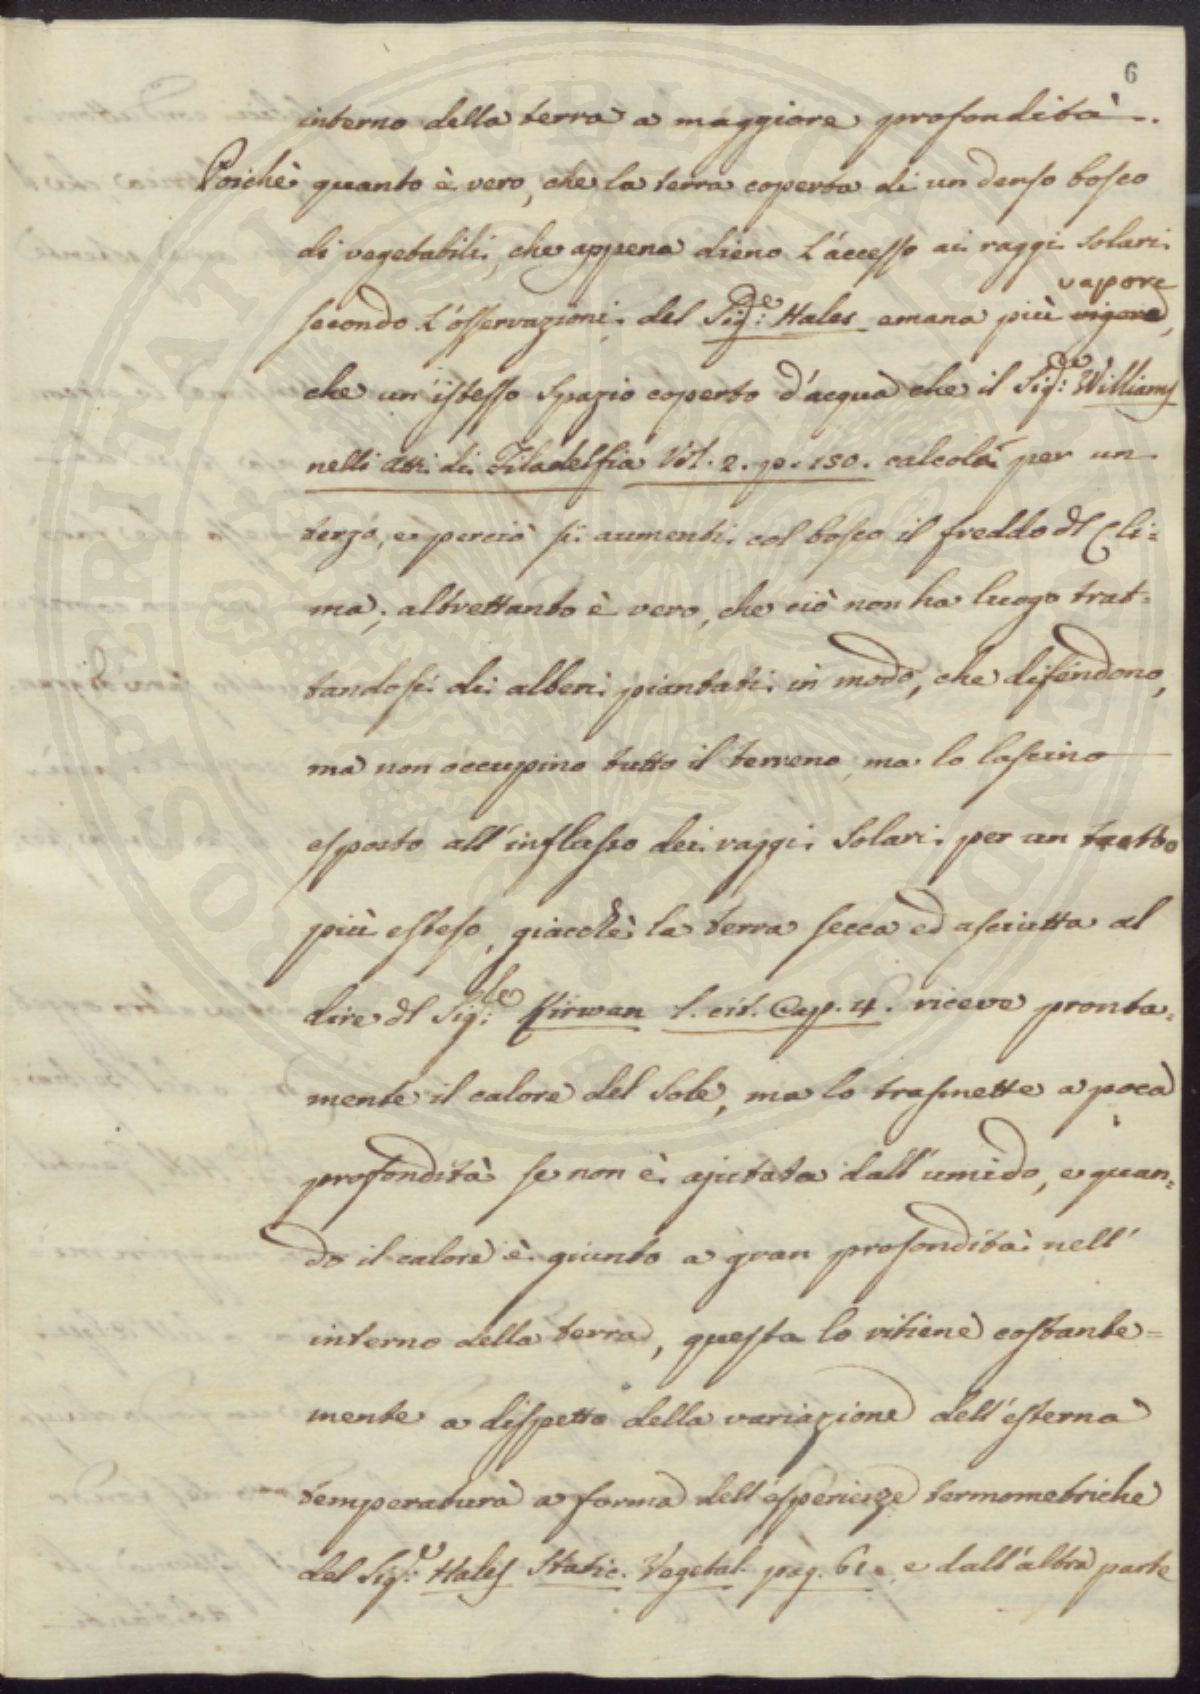 6
interno della terra a maggiore profondità.
Poichè quanto è vero, che la terra coperta di un denso bosco
di vegetabili, che appena dieno l'accesso ai raggi solari
vapore
secondo l'osservazioni del Sig:e Hales emana più vigore,
che un istesso spazio coperto d'acqua che il Sig:e Williams
nelli atti di Filadelfia Vol. 2. p. 150. calcola per un
terzo, e perciò si aumenti col bosco il freddo dl Cli=
ma; altrettanto è vero, che ciò non ha luogo trat=
tandosi di alberi piantati in modo, che difendono,
ma non occupino tutto il terreno ma lo lascino
esposto all'influsso dei raggi solari per un tratto
più esteso, giacchè la terra secca ed asciutta al
dire dl Sig:le Kirwan l. cit. Cap. 4. riceve pronta=
mente il calore del Sole, ma lo trasmette a poca
profondità se non è ajutata dall'umido, e quan=
do il calore è giunto a gran profondità nell'
interno della terra, questa lo ritiene costante=
mente a dispetto della variazione dell'esterna
temperatura a forma dell'esperienze termometriche
del Sig:e Hales Static. Vegetal. pag. 61. e dall'altra parte
PROSPERITATI PUBLICAE AUGENDAE